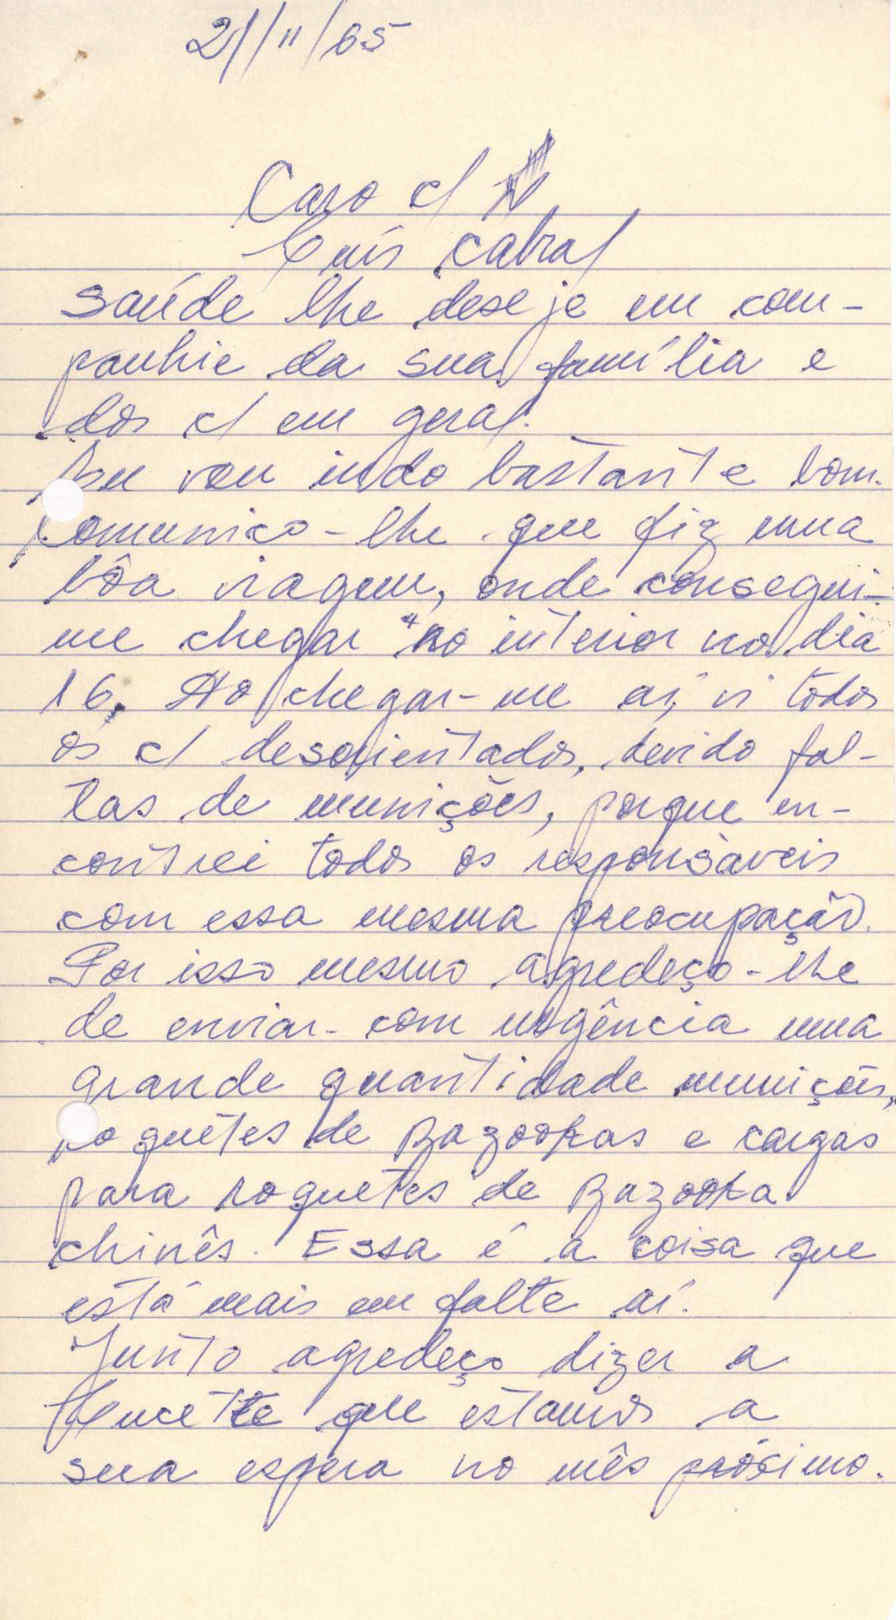 21/11/65
Caro c/
Luís Cabral
saúde lhe deseje em com-
panhie da sua família e
dos c/ em geral.
Eu vou indo bastante bom.
Comunico-lhe que fiz uma
bôa viagem, onde consegui-
me chegar "no interior no dia
16. Ao chegar-me aí, vi todos
os c/ desorientados, devido fal-
tas de munições, porque en-
contrei todos os responsáveis
com essa mesma preocupação.
Por isso mesmo agredeço-lhe
de enviar-com urgência uma
grande quantidade munições,
roquêtes de Bazookas e cargas
para roquetes de Bazooka
chinês. Essa é a coisa que
está mais em falte aí.
Junto agredeço dizer a
que estamos a
sua espera no mês próximo.